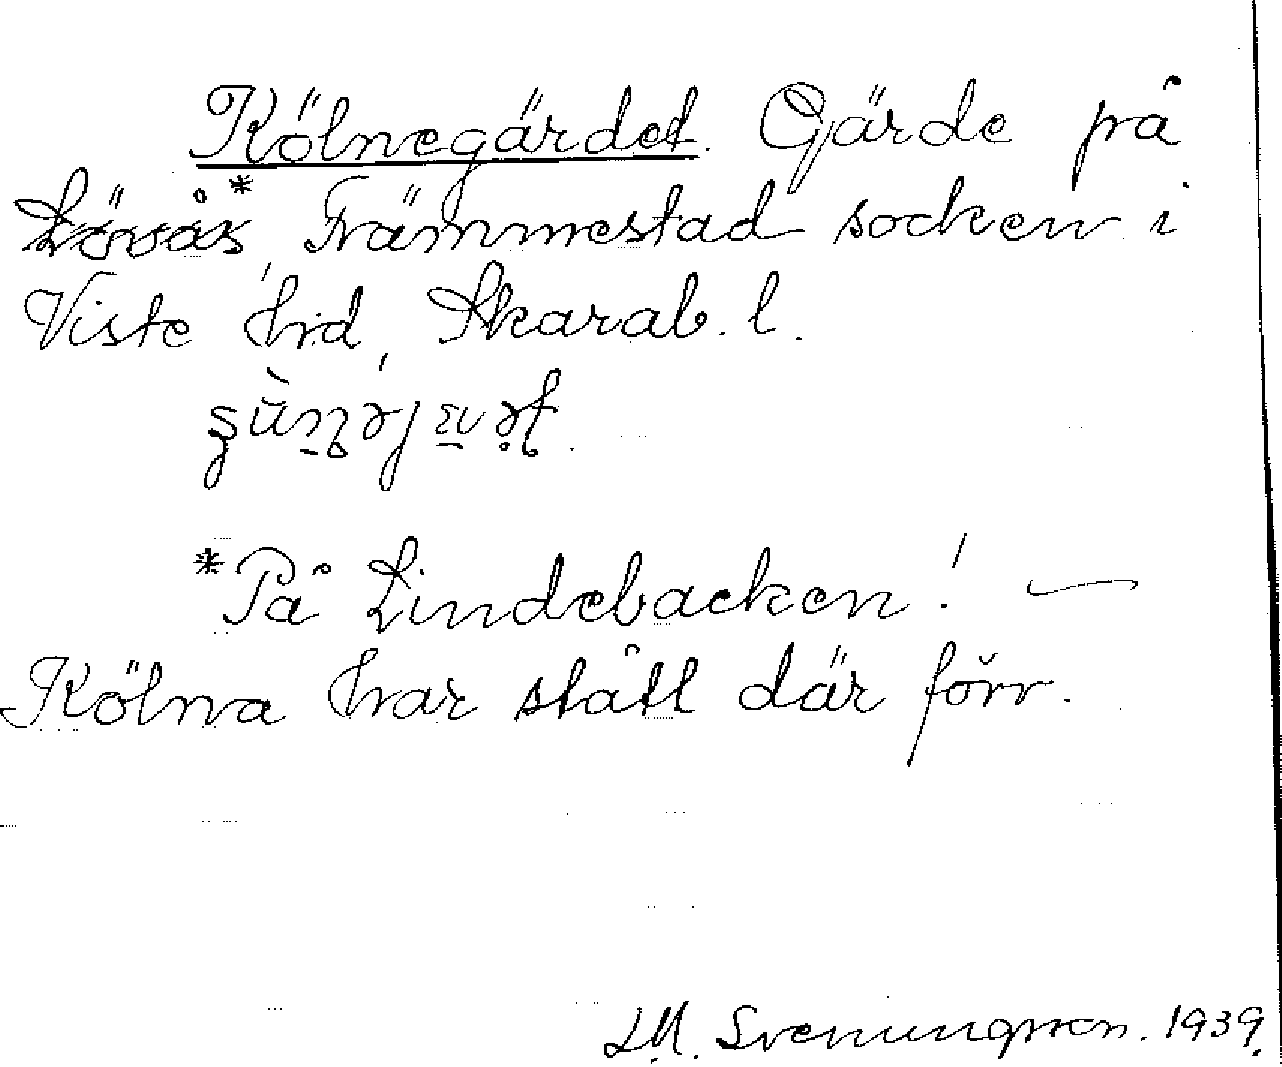 Kölnegärdet. Gärde på
Lövås*, Främmestad socken i
Viste hrd, Skarab. l.
*På Lindebacken! —
Kölna har stått där förr.
L.M. Svenungsson. 1939.